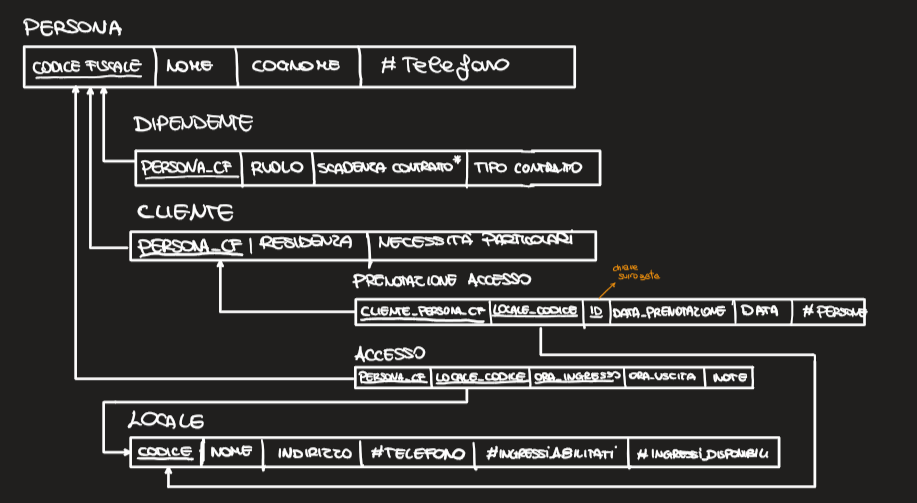 PERSONA
CODICE FISCALE NOME COGNOME #Telefono
DIPENDENTE
PERSONA_CF RUOLO SCADENZA CONTRATTO* TIPO CONTRATTO
CLIENTE
PERSONA_CF RESIDENZA NECESSITÀ PARTICOLARI
chiave
surrogata
PRENOTAZIONE ACCESSO
CLIENTE_PERSONA_CF LOCALE_CODICE ID DATA_PRENOTAZIONE DATA #PERSONE
ACCESSO
PERSONA_CF LOCALE_CODICE ORA_INGRESSO ORA_USCITA NOTE
LOCALE
CODICE NOME INDIRIZZO #TELEFONO #INGRESSI ABILITATI #INGRESSI_DISPONIBILI